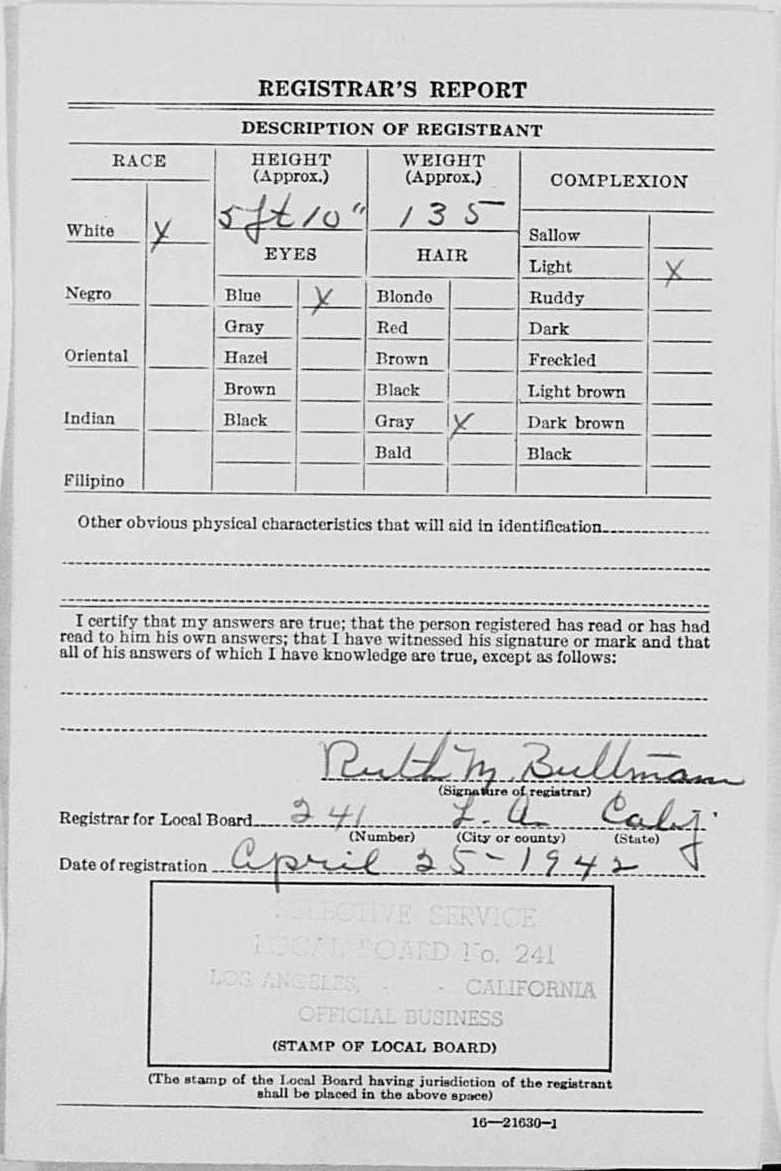 REGISTRAR'S REPORT
DESCRIPTION OF REGISTRANT
RACE
HEIGHT
(Approx.)
WEIGHT
(Approx.)
COMPLEXION
5 ft 10"
135
White X
EYES
HAIR
Sallow
Light X
Negro
Blue X
Blonde
Ruddy
Gray
Red
Dark
Oriental
Hazel
Brown
Freckled
Brown
Black
Light brown
Indian
Black
Gray X
Dark brown
Bald
Black
Filipino
Other obvious physical characteristics that will aid in identification
I certify that my answers are true; that the person registered has read or has had
read to him his own answers; that I have witnessed his signature or mark and that
all of his answers of which I have knowledge are true, except as follows:
Ruth M. Bullman
(Signature of registrar)
Registrar for Local Board 241 L. A. Calif.
(Number) (City or county) (State)
Date of registration April 25-1942
SELECTIVE SERVICE
LOCAL BOARD No. 241
LOS ANGELES, - - CALIFORNIA
OFFICIAL BUSINESS
(STAMP OF LOCAL BOARD)
(The stamp of the Local Board having jurisdiction of the registrant
shall be placed in the above space)
16—21630-1